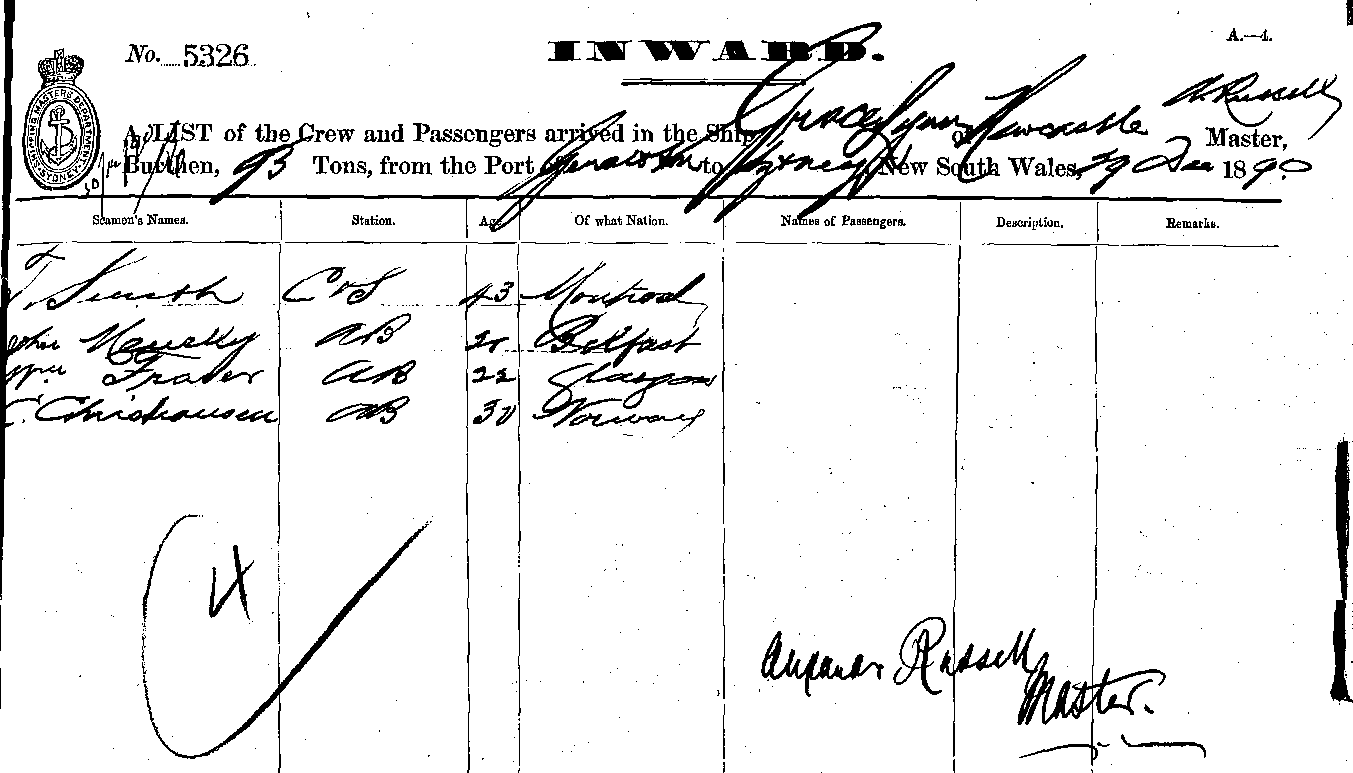 No. 5326 INWARD. A.—4.
SHIPPING MASTERS DEPARTMENT SYDNEY
A LIST of the Crew and Passengers arrived in the Ship Grace Lynn of Newcastle A. Russell Master,
Burthen, 93 Tons, from the Port of to Sydney New South Wales, 29 Dec 1890
Seamen's Names. Station. Age Of what Nation. Names of Passengers. Description. Remarks.
T. Smith C & S 43 Montrose
John AB Belfast
Wm Fraser AB 22 Glasgow
C. Christiansen AB 30 Norway
4
Alexander Russell
Master.